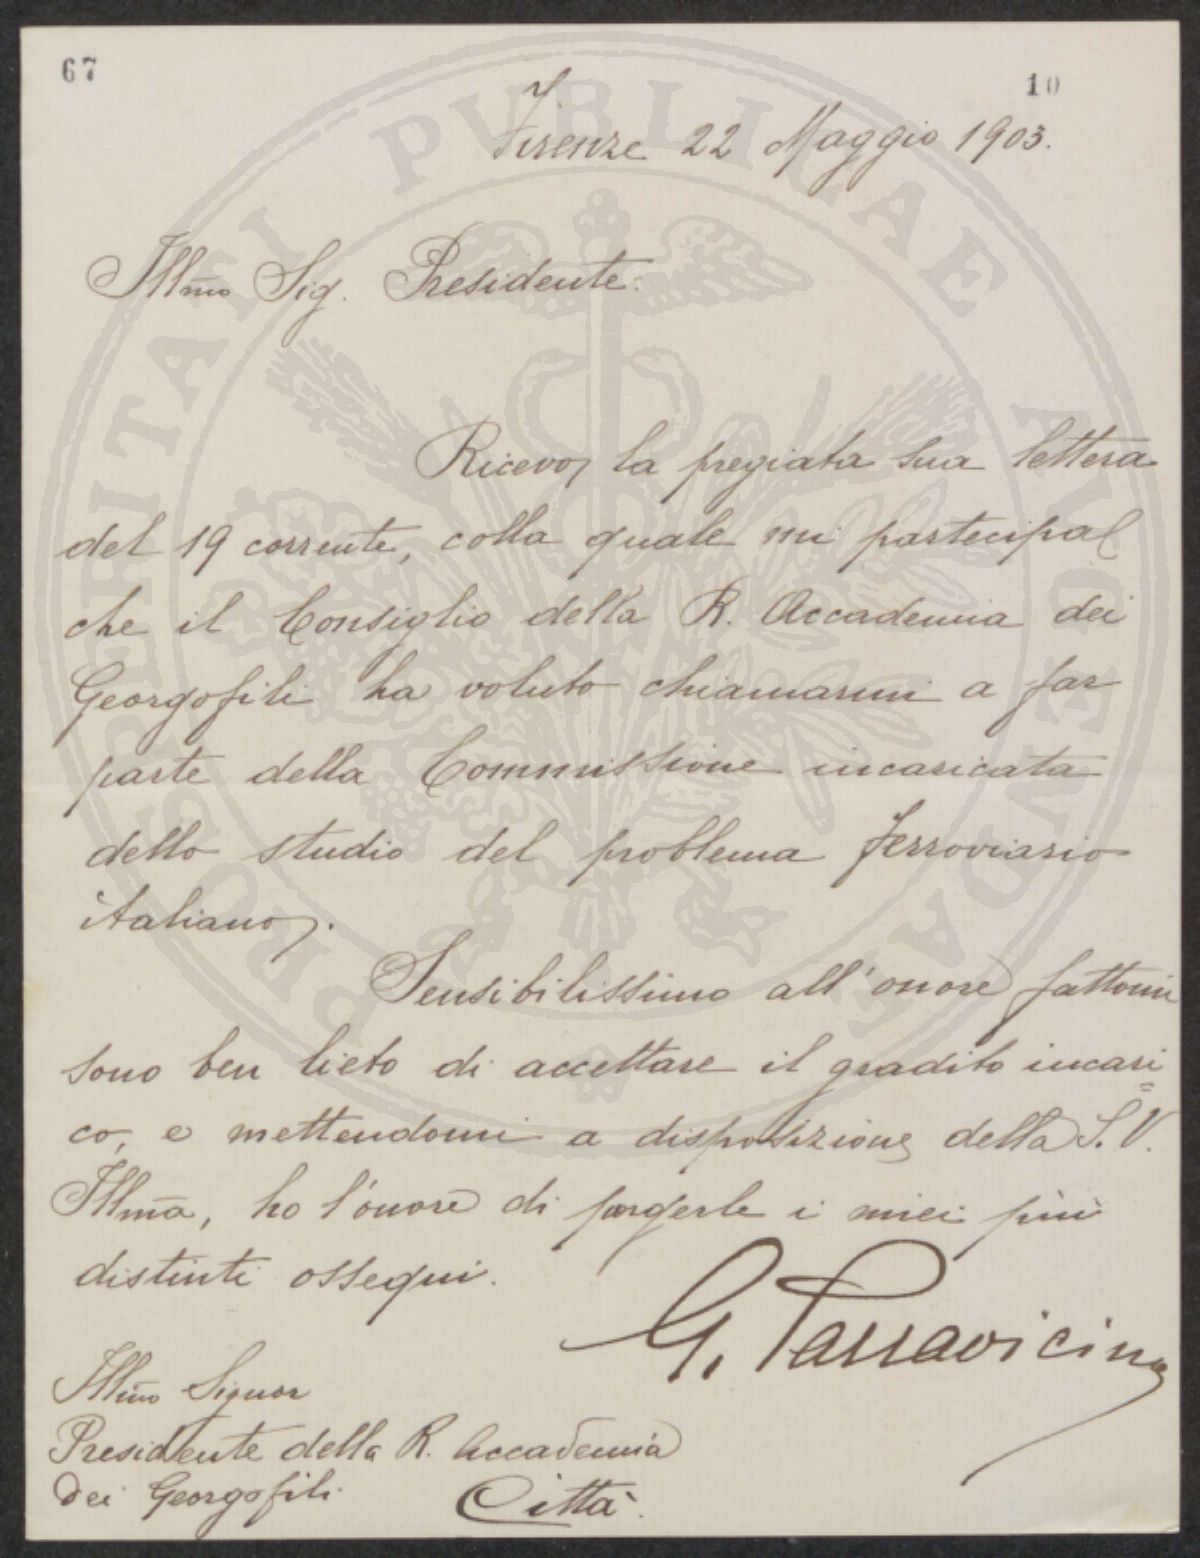 67
10
Firenze 22 Maggio 1903.
Illmo Sig. Presidente.
Ricevo la pregiata sua lettera
del 19 corrente, colla quale mi partecipa
che il Consiglio della R. Accademia dei
Georgofili ha voluto chiamarmi a far
parte della Commissione incaricata
dello studio del problema ferroviario
italiano.
Sensibilissimo all'onore fattomi
sono ben lieto di accettare il gradito incari=
co, e mettendomi a disposizione della S.V.
Illma, ho l'onore di porgerle i miei più
distinti ossequi.
G. Parravicino
Illmo Signor
Presidente della R. Accademia
dei Georgofili
Città.
PROSPERITATI PUBLICAE AUGENDAE